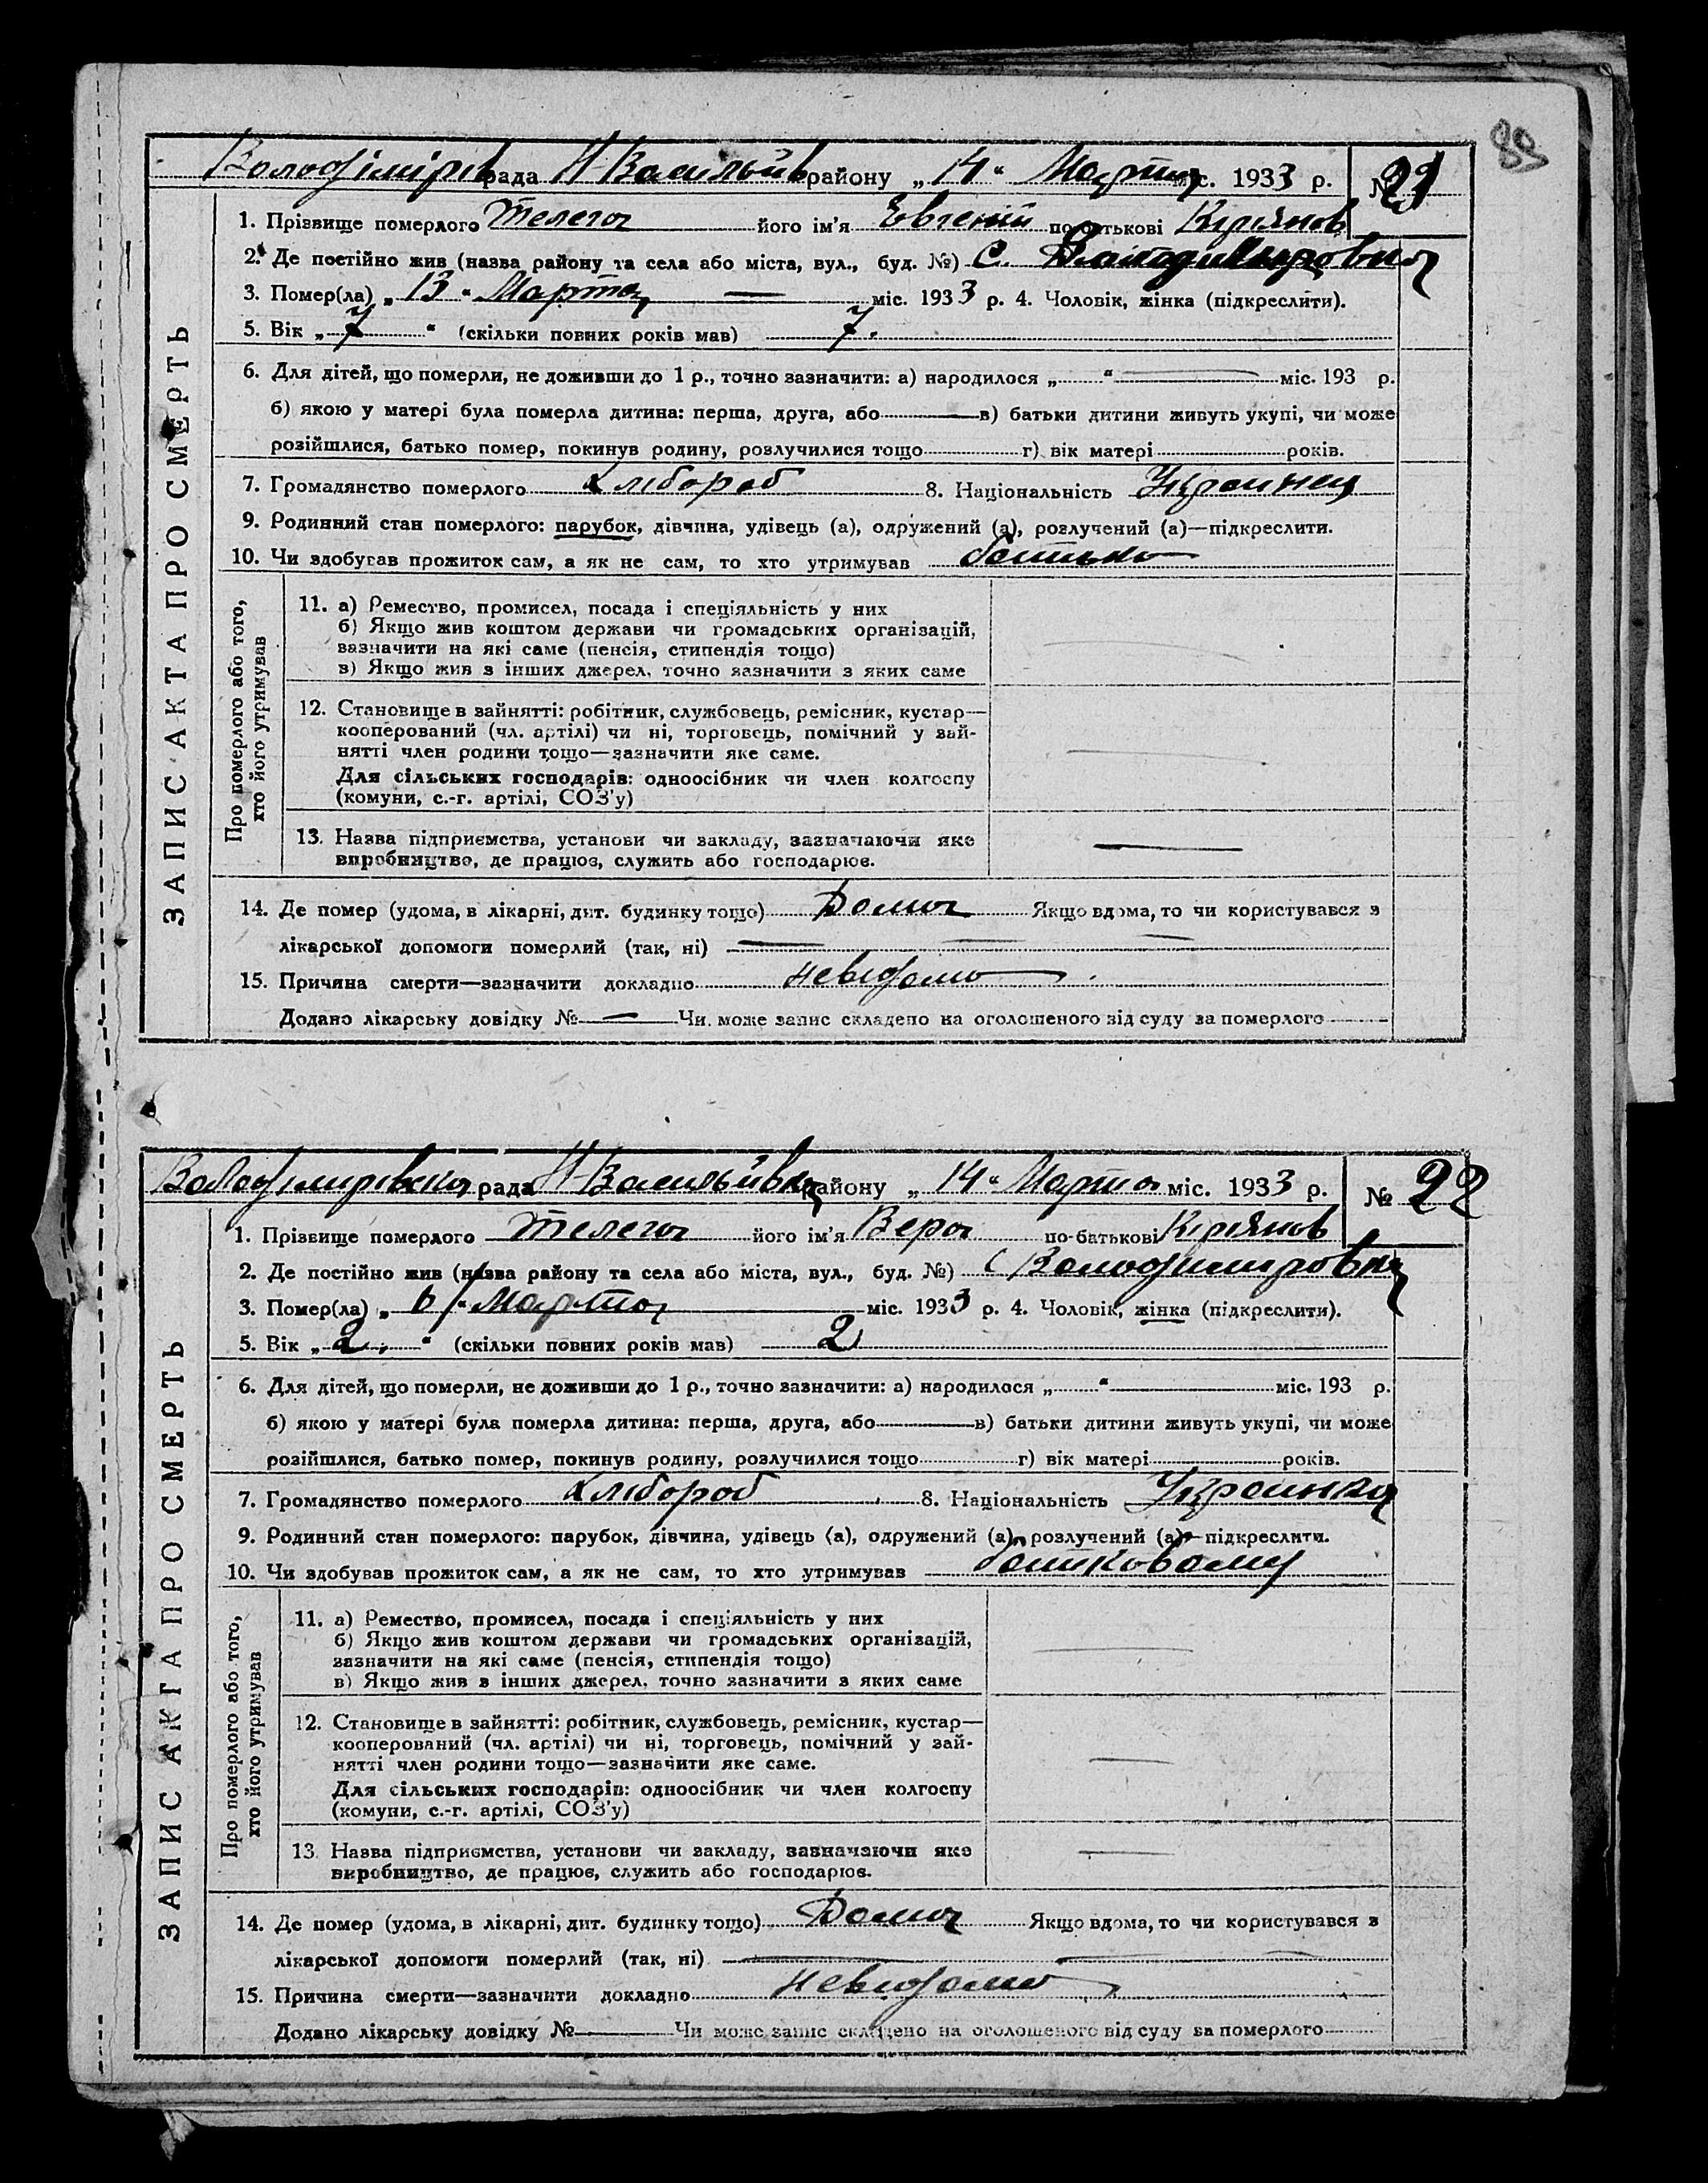 89
Володімірів рада Н Васильїв району „14“ Марта міс. 1933 р. № 21
ЗАПИС АКТА ПРО СМЕРТЬ
1. Прізвище померлого Телега його ім'я Евгений по-батькові Кіріянов
2. Де постійно жив (назва району та села або міста, вул., буд. №) С. Володимировка
3. Помер(ла) „13“ Марта — міс. 1933 р. 4. Чоловік, жінка (підкреслити).
5. Вік „7“ (скільки повних років мав) 7.
6. Для дітей, що померли, не доживши до 1 р., точно зазначити: а) народилося „ “ — міс. 193 р.
б) якою у матері була померла дитина: перша, друга, або — в) батьки дитини живуть укупі, чи може
розійшлися, батько помер, покинув родину, розлучилися тощо г) вік матері років.
7. Громадянство померлого Хлібороб 8. Національність Украинец
9. Родинний стан померлого: парубок, дівчина, удівець (а), одружений (а), розлучений (а)—підкреслити.
10. Чи здобував прожиток сам, а як не сам, то хто утримував батько
Про померлого або того,
хто його утримував
11. а) Ремество, промисел, посада і спеціяльність у них
б) Якщо жив коштом держави чи громадських організацій,
зазначити на які саме (пенсія, стипендія тощо)
в) Якщо жив з інших джерел, точно зазначити з яких саме
12. Становище в зайнятті: робітник, службовець, ремісник, кустар—
кооперований (чл. артілі) чи ні, торговець, помічний у зай-
нятті член родини тощо—зазначити яке саме.
Для сільських господарів: одноосібник чи член колгоспу
(комуни, с.-г. артілі, СОЗ'у)
13. Назва підприємства, установи чи закладу, зазначаючи яке
виробництво, де працює, служить або господарює.
14. Де помер (удома, в лікарні, дит. будинку тощо) Дома Якщо вдома, то чи користувався з
лікарської допомоги померлий (так, ні) —
15. Причина смерти—зазначити докладно невідомо
Додано лікарську довідку № — Чи може запис складено на оголошеного від суду за померлого
Володімирівска рада Н Васильївка району „14“ Марта міс. 1933 р. № 22
ЗАПИС АКТА ПРО СМЕРТЬ
1. Прізвище померлого Телега його ім'я Вера по-батькові Кіріянов
2. Де постійно жив (назва району та села або міста, вул., буд. №) С Володимировка
3. Помер(ла) „6“ Марта міс. 1933 р. 4. Чоловік, жінка (підкреслити).
5. Вік „2.“ (скільки повних років мав) 2
6. Для дітей, що померли, не доживши до 1 р., точно зазначити: а) народилося „ “ міс. 193 р.
б) якою у матері була померла дитина: перша, друга, або в) батьки дитини живуть укупі, чи може
розійшлися, батько помер, покинув родину, розлучилися тощо г) вік матері років.
7. Громадянство померлого Хлібороб 8. Національність Украинка
9. Родинний стан померлого: парубок, дівчина, удівець (а), одружений (а), розлучений (а)—підкреслити.
10. Чи здобував прожиток сам, а як не сам, то хто утримував
Про померлого або того,
хто його утримував
11. а) Ремество, промисел, посада і спеціяльність у них
б) Якщо жив коштом держави чи громадських організацій,
зазначити на які саме (пенсія, стипендія тощо)
в) Якщо жив з інших джерел, точно зазначити з яких саме
12. Становище в зайнятті: робітник, службовець, ремісник, кустар—
кооперований (чл. артілі) чи ні, торговець, помічний у зай-
нятті член родини тощо—зазначити яке саме.
Для сільських господарів: одноосібник чи член колгоспу
(комуни, с.-г. артілі, СОЗ'у)
13. Назва підприємства, установи чи закладу, зазначаючи яке
виробництво, де працює, служить або господарює.
14. Де помер (удома, в лікарні, дит. будинку тощо) Дома Якщо вдома, то чи користувався з
лікарської допомоги померлий (так, ні) —
15. Причина смерти—зазначити докладно невідомо
Додано лікарську довідку № Чи може запис складено на оголошеного від суду за померлого